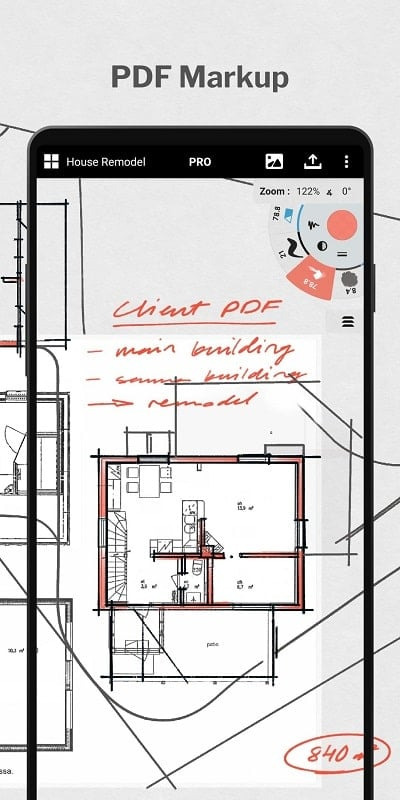 PDF Markup
House Remodel PRO
Zoom : 122% 0°
78.8
21
78.8
8.4
Client PDF
– main building
– sauna building
→ remodel
patio
840 m²
ssa.